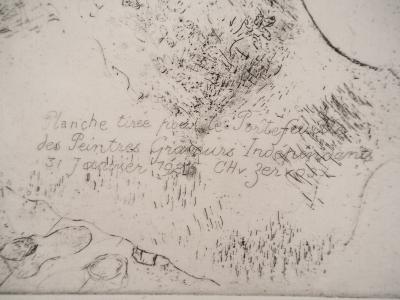 Planche tirée pour le Portefeuille
des Peintres Graveurs Indépendants
31 Janvier CH